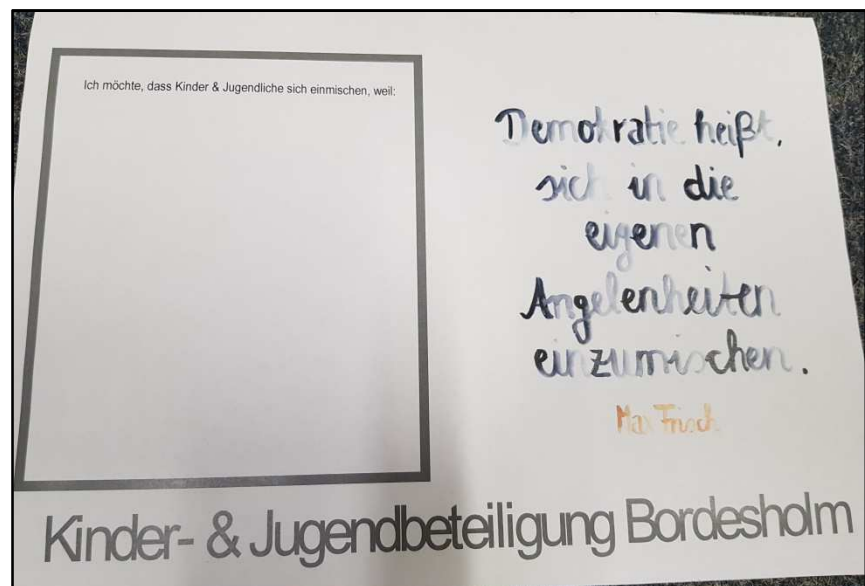 Ich möchte, dass Kinder & Jugendliche sich einmischen, weil:
Demokratie heißt,
sich in die
eigenen
Angelenheiten
einzumischen.
Max Frisch
Kinder- & Jugendbeteiligung Bordesholm